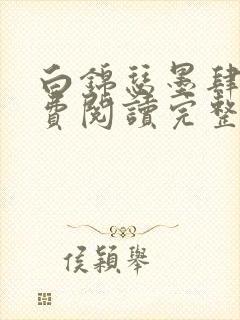 白錦瑟墨肆
費閱讀完整
侯穎舉